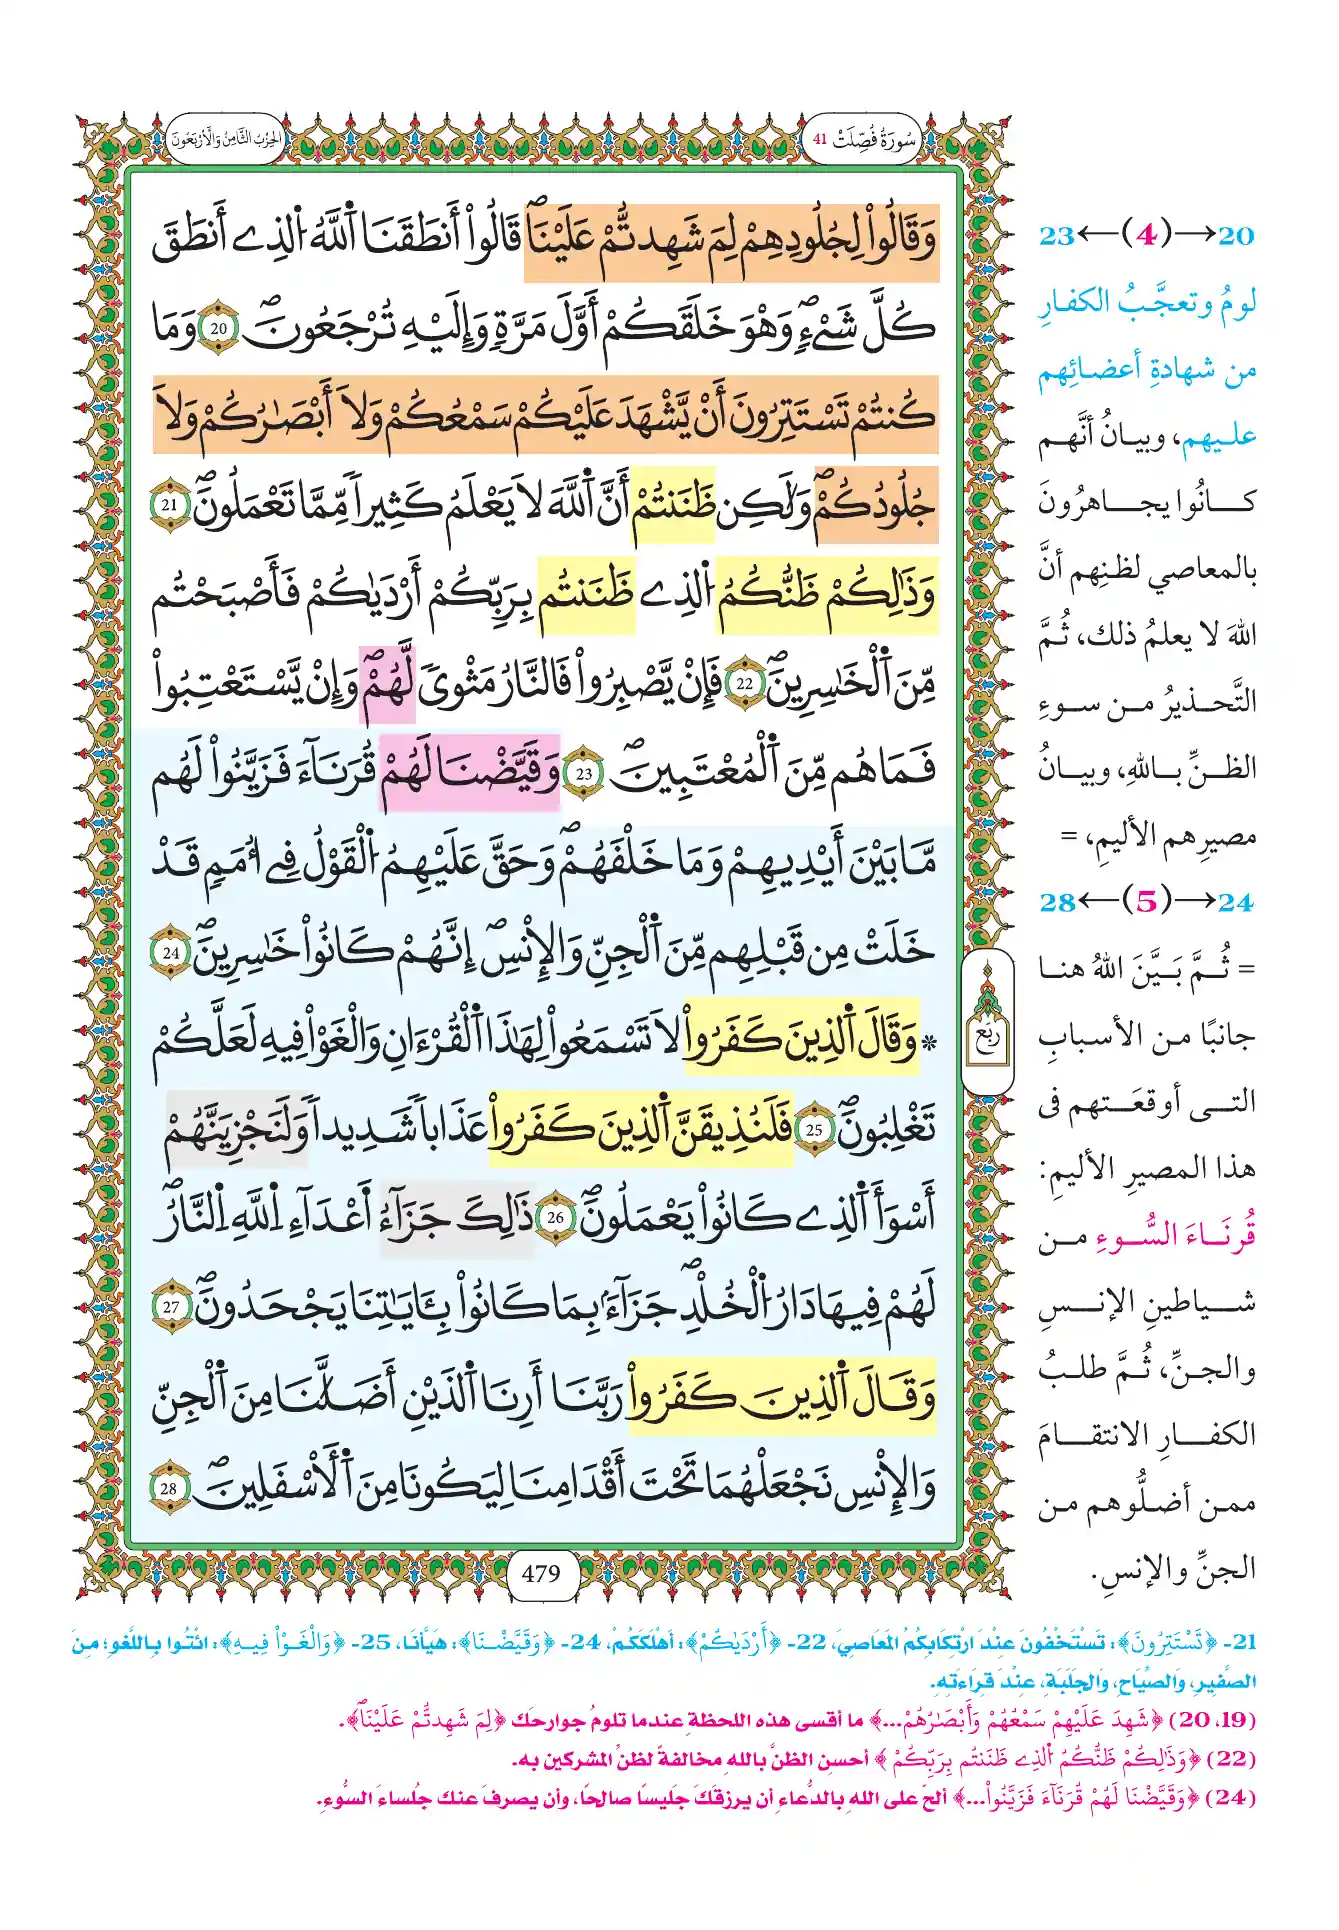 سُورَةُ فُصِّلَتْ 41
الحِزْبُ الثَّامِنُ وَالأَرْبَعُونَ
وَقَالُواْ لِجُلُودِهِمْ لِمَ شَهِدتُّمْ عَلَيْنَاۖ قَالُواْ أَنطَقَنَا اَ۬للَّهُ اُ۬لذِے أَنطَقَ
كُلَّ شَےْءٖۖ وَهْوَ خَلَقَكُمْ أَوَّلَ مَرَّةٖ وَإِلَيْهِ تُرْجَعُونَۖ 20 وَمَا
كُنتُمْ تَسْتَتِرُونَ أَنْ يَّشْهَدَ عَلَيْكُمْ سَمْعُكُمْ وَلَا أَبْصَٰرُكُمْ وَلَا
جُلُودُكُمْۖ وَلَٰكِن ظَنَنتُمْ أَنَّ اَ۬للَّهَ لَا يَعْلَمُ كَثِيراٗ مِّمَّا تَعْمَلُونَۖ 21
وَذَٰلِكُمْ ظَنُّكُمُ اُ۬لذِے ظَنَنتُم بِرَبِّكُمْ أَرْدَيٰكُمْ فَأَصْبَحْتُم
مِّنَ اَ۬لْخَٰسِرِينَۖ 22 فَإِنْ يَّصْبِرُواْ فَالنَّارُ مَثْويٗ لَّهُمْۖ وَإِنْ يَّسْتَعْتِبُواْ
فَمَا هُم مِّنَ اَ۬لْمُعْتَبِينَۖ 23 وَقَيَّضْنَا لَهُمْ قُرَنَآءَ فَزَيَّنُواْ لَهُم
مَّا بَيْنَ أَيْدِيهِمْ وَمَا خَلْفَهُمْۖ وَحَقَّ عَلَيْهِمُ اُ۬لْقَوْلُ فِےٓ أُمَمٖ قَدْ
خَلَتْ مِن قَبْلِهِم مِّنَ اَ۬لْجِنِّ وَالْإِنسِۖ إِنَّهُمْ كَانُواْ خَٰسِرِينَۖ 24
* وَقَالَ اَ۬لذِينَ كَفَرُواْ لَا تَسْمَعُواْ لِهَٰذَا اَ۬لْقُرْءَانِ وَالْغَوْاْ فِيهِ لَعَلَّكُمْ
تَغْلِبُونَۖ 25 فَلَنُذِيقَنَّ اَ۬لذِينَ كَفَرُواْ عَذَاباٗ شَدِيداٗ وَلَنَجْزِيَنَّهُمْ
أَسْوَأَ اَ۬لذِے كَانُواْ يَعْمَلُونَۖ 26 ذَٰلِكَ جَزَآءُ اُ۬عْدَآءِ اِ۬للَّهِ اِ۬لنَّارُۖ
لَهُمْ فِيهَا دَارُ اُ۬لْخُلْدِۖ جَزَآءَۢ بِمَا كَانُواْ بِـَٔايَٰتِنَا يَجْحَدُونَۖ 27
وَقَالَ اَ۬لذِينَ كَفَرُواْ رَبَّنَا أَرِنَا اَ۬لذَيْنِ أَضَلَّٰنَا مِنَ اَ۬لْجِنِّ
وَالْإِنسِ نَجْعَلْهُمَا تَحْتَ أَقْدَامِنَا لِيَكُونَا مِنَ اَ۬لْأَسْفَلِينَۖ 28
ربع
479
20→(4)←23
لومُ وتعجَّبُ الكفارِ
من شهادةِ أعضائِهم
عليهم، وبيانُ أنَّهم
كانُوا يجاهرُونَ
بالمعاصي لظنِهم أنَّ
اللهَ لا يعلمُ ذلك، ثُمَّ
التَّحذيرُ من سوءِ
الظنِّ باللهِ، وبيانُ
مصيرِهم الأليمِ، =
24→(5)←28
= ثُمَّ بَيَّنَ اللهُ هنا
جانبًا من الأسبابِ
التي أوقعَتهم في
هذا المصيرِ الأليمِ:
قُرنَاءَ السُّوءِ من
شياطينِ الإنسِ
والجنِّ، ثُمَّ طلبُ
الكفارِ الانتقامَ
ممن أضلُّوهم من
الجنِّ والإنسِ.
21- ﴿تَسْتَتِرُونَ﴾: تَسْتَخْفُونَ عِنْدَ ارْتِكَابِكُمُ المَعَاصِيَ، 22- ﴿أَرْدَيٰكُمْ﴾: أَهْلَكَكُمْ، 24- ﴿وَقَيَّضْنَا﴾: هَيَّأنَا، 25- ﴿وَالْغَوْاْ فِيهِ﴾: ائْتُوا بِاللَّغْوِ؛ مِنَ
الصَّفِيرِ، وَالصِّيَاحِ، وَالجَلَبَةِ، عِنْدَ قِرَاءَتِهِ.
(19، 20) ﴿شَهِدَ عَلَيْهِمْ سَمْعُهُمْ وَأَبْصَٰرُهُمْ...﴾ ما أقسى هذه اللحظةِ عندما تلومُ جوارحَك ﴿لِمَ شَهِدتُّمْ عَلَيْنَاۖ﴾.
(22) ﴿وَذَٰلِكُمْ ظَنُّكُمُ اُ۬لذِے ظَنَنتُم بِرَبِّكُمْ﴾ أحسنِ الظنَّ باللهِ مخالفةً لظنِّ المشركين به.
(24) ﴿وَقَيَّضْنَا لَهُمْ قُرَنَآءَ فَزَيَّنُواْ...﴾ ألحَّ على اللهِ بالدُّعاءِ أن يرزقَكَ جَليساً صالحاً، وأن يصرفَ عنك جُلساءَ السُّوءِ.